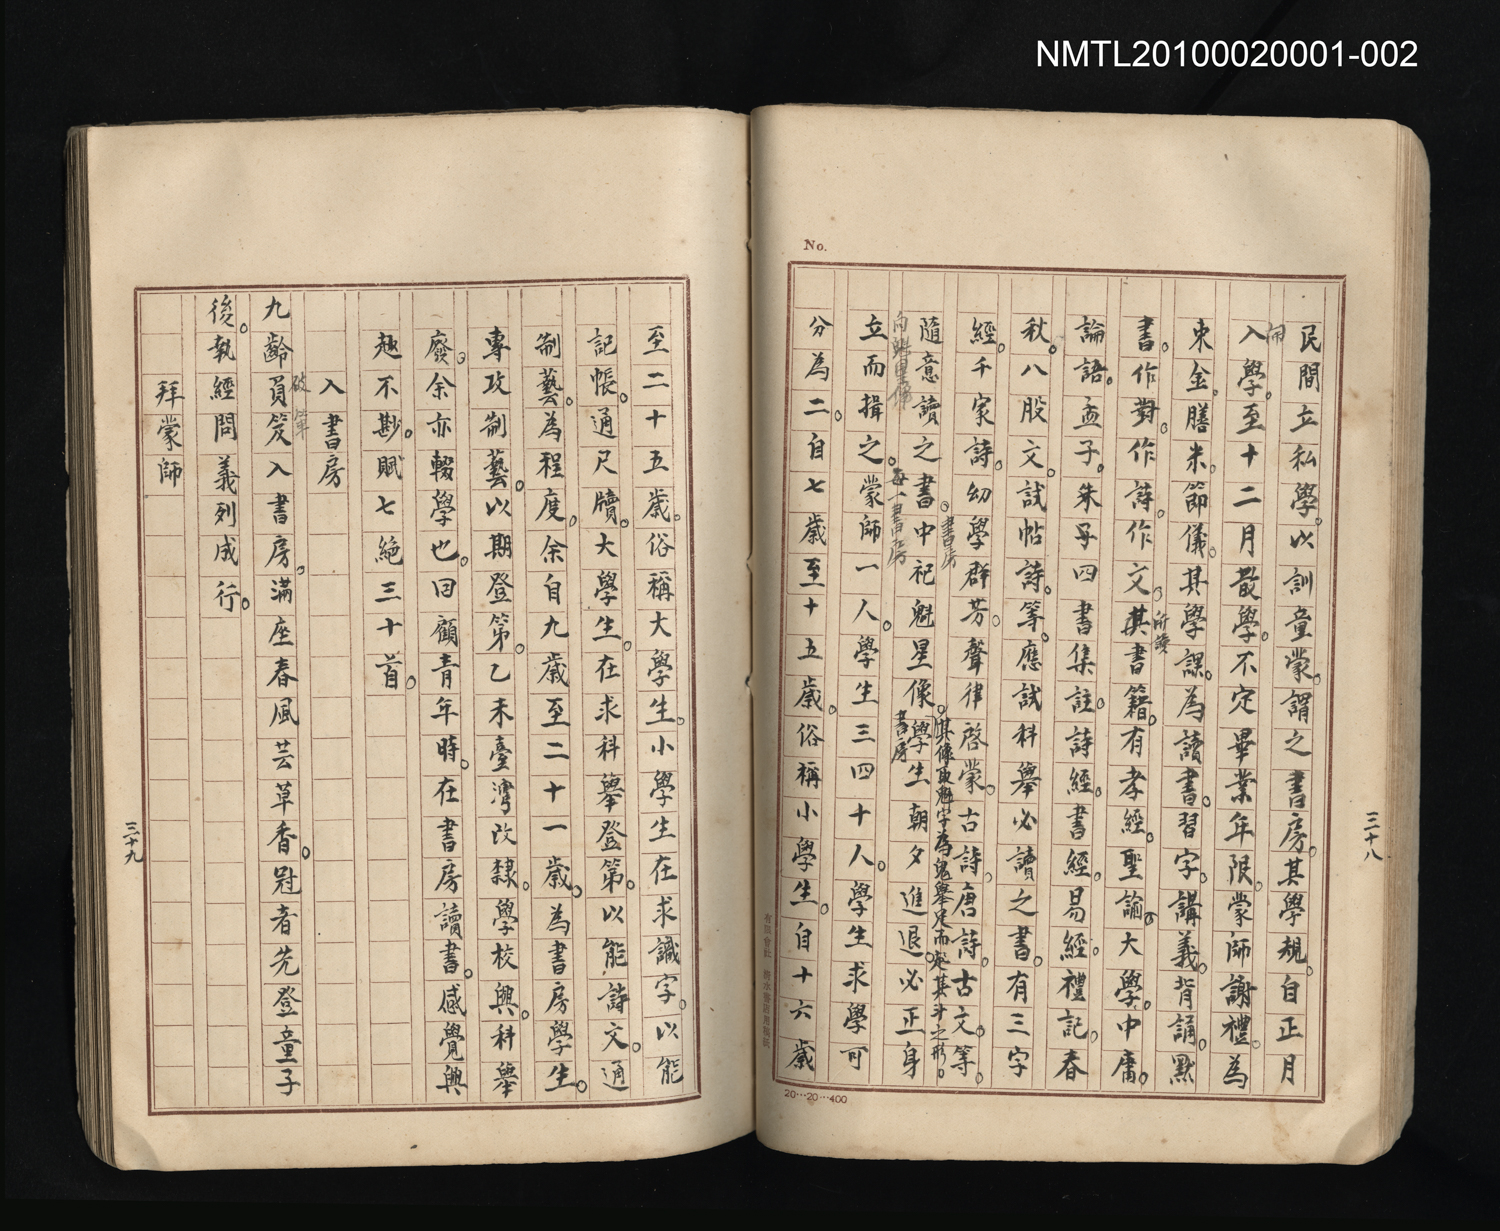 NMTL20100020001-002
No.
民間立私學。以訓童蒙。謂之書房。其學規。自正月
開
入學。至十二月散學。不定畢業年限。蒙師謝禮。為
束金。膳米。節儀。其學課。為讀書。習字。講義。背誦。默
書。作對。作詩。作文。其書籍。有孝經。聖諭。大學。中庸。
所讀
論語。孟子。朱子四書集註。詩經。書經。易經。禮記。春
秋。八股文。試帖詩等。應試科舉必讀之書。有三字
經。千家詩。幼學群芳。聲律啓蒙。古詩。唐詩。古文。等。
書房
隨意讀之書。中祀魁星像。學生朝夕進退。必正身
其像取魁字為鬼舉足而起其斗之形。
書房
向魁星像
每一書房
立而揖之。蒙師一人。學生三四十人。學生求學可
分為二。自七歲至十五歲。俗稱小學生。自十六歲
三十八
20…20…400
至二十五歲。俗稱大學生。小學生在求識字。以能
記帳。通尺牘。大學生。在求科舉登第。以能詩文。通
制藝。為程度。余自九歲至二十一歲。為書房學生。
專攻制藝。以期登第。乙未臺灣改隸。學校興。科舉
廢。余亦輟學也。回顧青年時。在書房讀書。感覺興
趣不尠。賦七絕三十首。
入書房
破筆
九齡負笈入書房。滿座春風芸草香。冠者先登童子
後。執經問義列成行。
拜蒙師
三十九